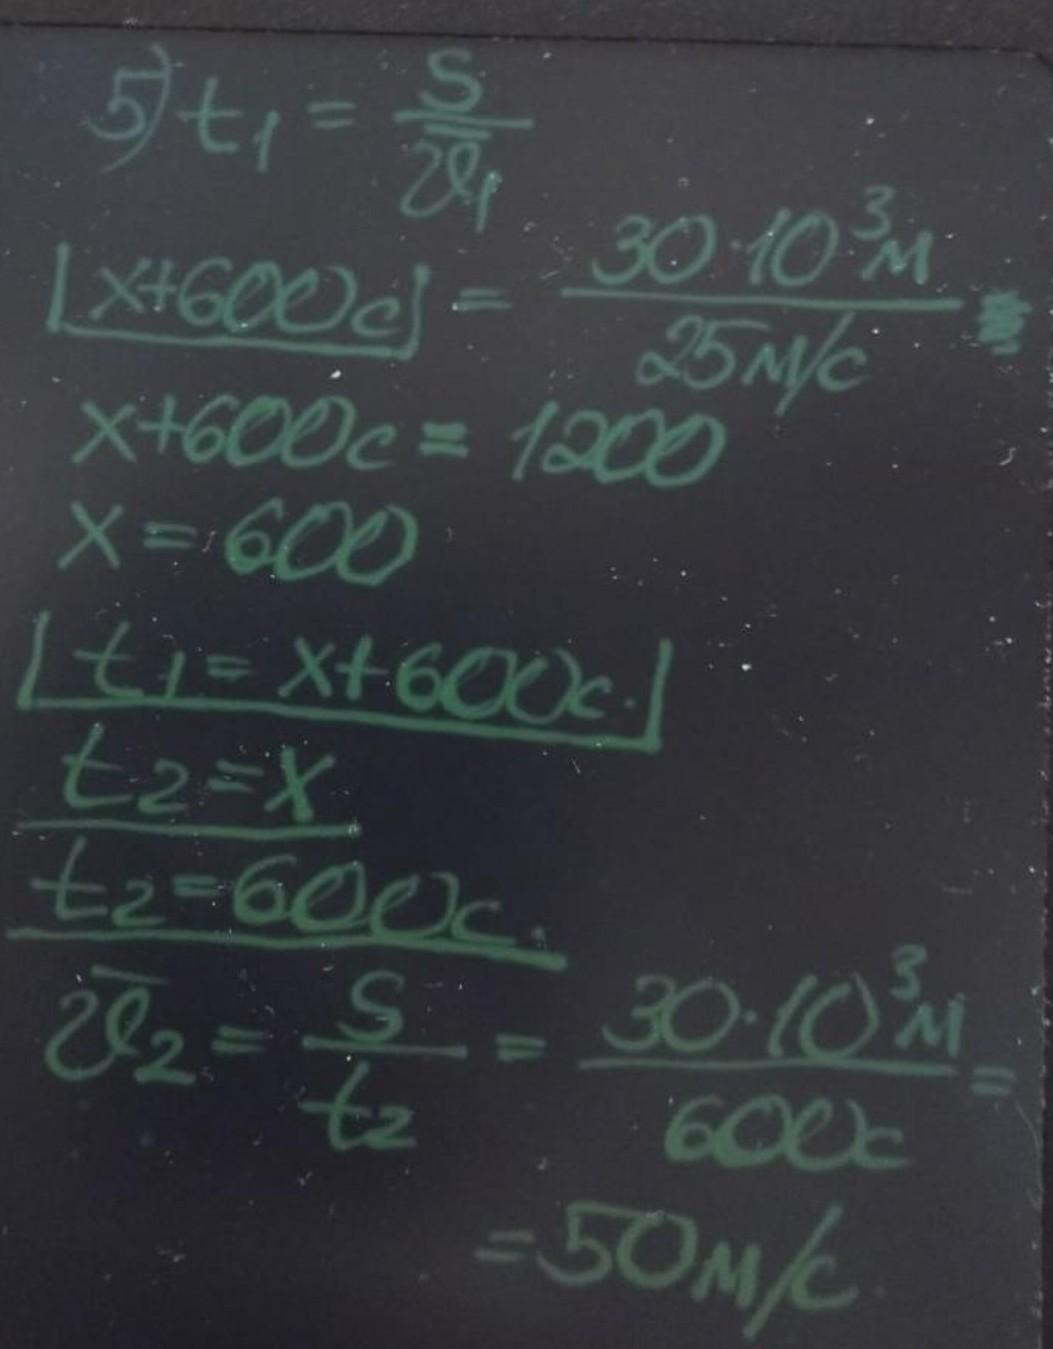 5) t₁ = S / v̄₁
|x+600c| = 30·10³м / 25м/с
x+600c = 1200
x = 600
|t₁ = x+600c.|
t₂ = x
t₂ = 600c.
v̄₂ = S / t₂ = 30·10³м / 600c =
= 50м/с